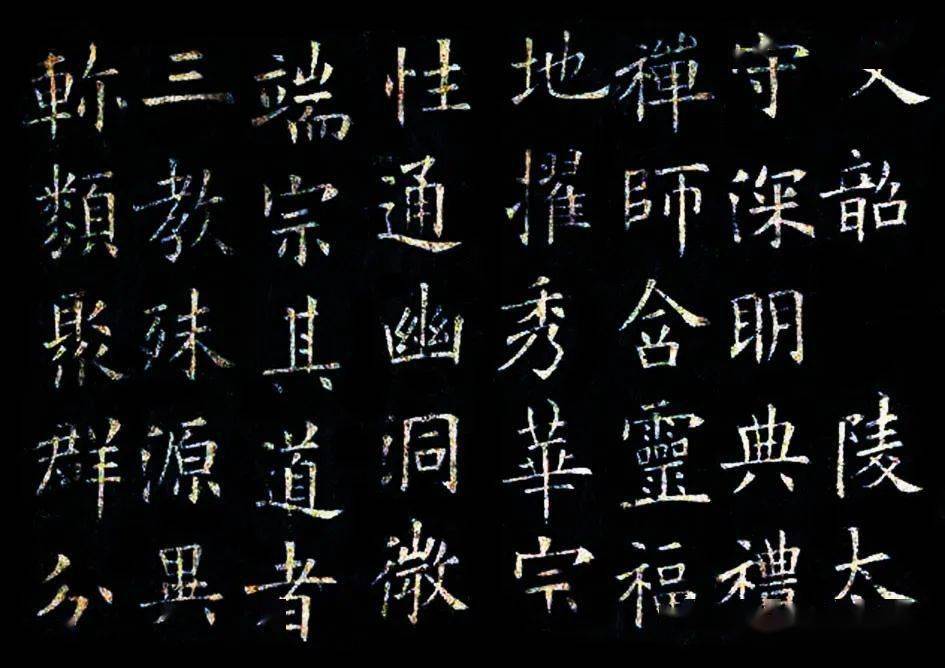 入韶陵太
守深明典禮
禪師含靈福
地擢秀華宗
性通幽洞微
端宗其道者
三教殊源異
軫類聚群分